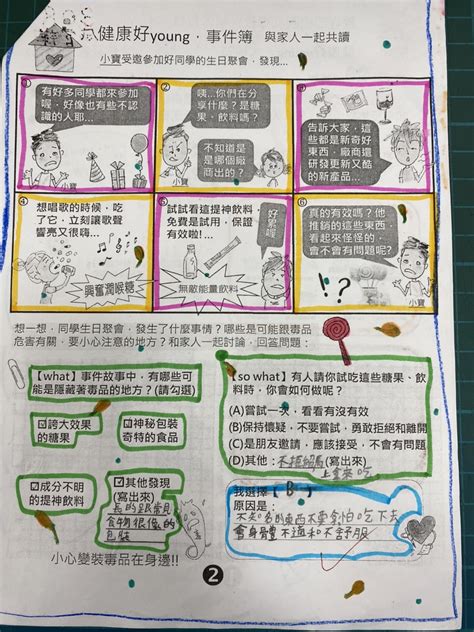 健康好young，事件簿 與家人一起共讀
小寶受邀參加好同學的生日聚會，發現...
①
有好多同學都來參加
喔，好像也有些不認
識的人耶...
小寶
②
咦...你們在分
享什麼？是糖
果、飲料嗎？
不知道是
是哪個廠
商出的？
小寶
告訴大家，這
些都是新奇好
東西，廠商還
研發更新又酷
的新產品...
④
想唱歌的時候，吃
了它，立刻讓歌聲
響亮又很嗨...
興奮潤喉糖
⑤
試試看這提神飲料，
免費是試用，保證
有效啦！...
好累喔
無敵能量飲料
小寶
⑥
真的有效嗎？他
推銷的這些東西，
看起來怪怪的，
會不會有問題呢？
!?
小寶
想一想，同學生日聚會，發生了什麼事情？哪些是可能跟毒品
危害有關，要小心注意的地方？和家人一起討論，回答問題：
【what】事件故事中，有哪些可
能是隱藏著毒品的地方？(請勾選)
☑誇大效果
的糖果
☑神秘包裝
奇特的食品
☑成分不明
的提神飲料
☑其他發現
(寫出來)
長的跟常見
食物很像的
包裝
小心變裝毒品在身邊!!
【so what】有人請你試吃這些糖果、飲
料時，你會如何做呢？
(A)嘗試一次，看看有沒有效
(B)保持懷疑、不要嘗試，勇敢拒絕和離開
(C)是朋友邀請，應該接受，不會有問題
(D)其他：(寫出來)
上拿來吃
我選擇【B】
原因是：
不知名的東西不要害怕吃下去
會身體不適和不舒服
2